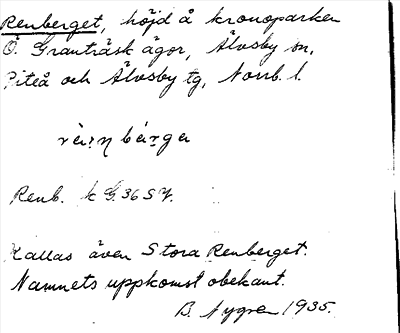 Renberget, höjd å kronoparken
Ö. Granträsk ägor, Älvsby sn,
Piteå och Älvsby tg, Norrb. l.
Renb. k G. 36 SV.
Kallas även Stora Renberget.
Namnets uppkomst obekant.
B. Nygren 1935.